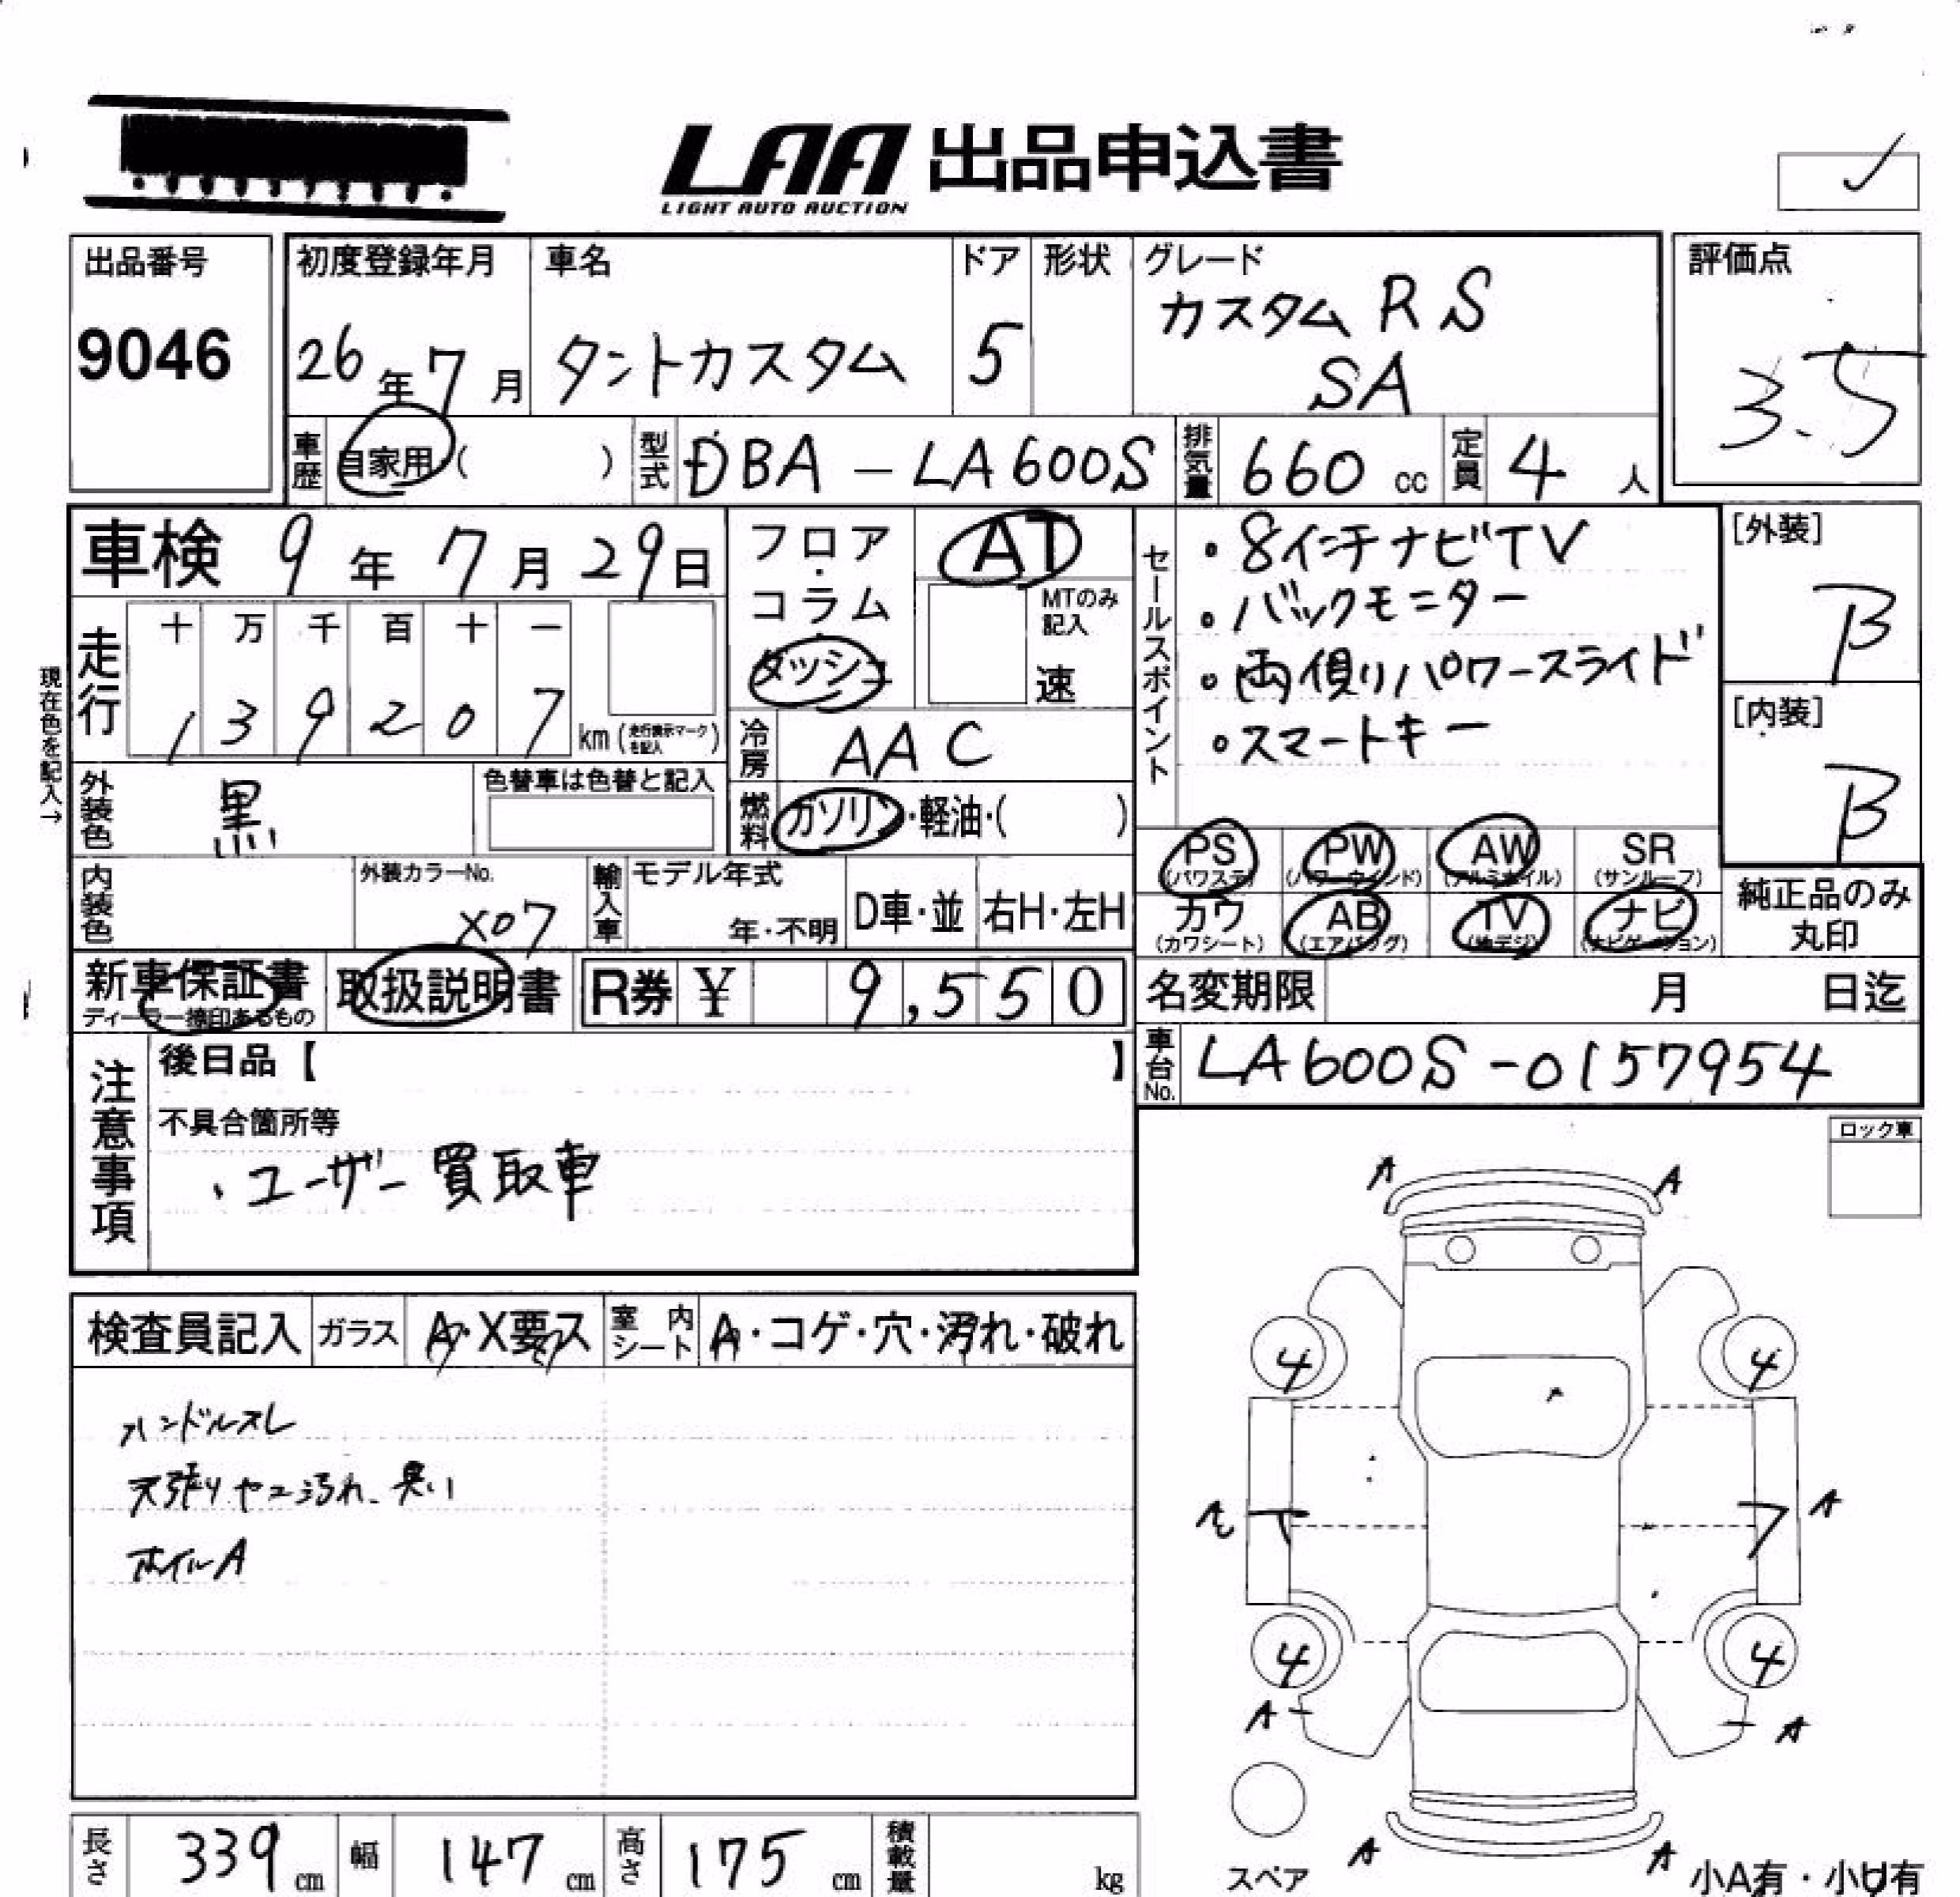 LAA 出品申込書
LIGHT AUTO AUCTION
出品番号
9046
初度登録年月
26年7月
車名
タントカスタム
ドア
5
形状
グレード
カスタム RS
SA
評価点
3.5
車歴
自家用 ( )
型式
DBA - LA600S
排気量
660 cc
定員
4 人
車検 9年7月29日
フロア・コラム・ダッシュ
AT
MTのみ記入
速
セールスポイント
・8インチナビTV
・バックモニター
・両側パワースライド
・スマートキー
[外装]
B
[内装]
B
現在色を記入→
走行
十 万 千 百 十 一
1 3 9 2 0 7 km (走行表示マークを記入)
冷房
AAC
外装色
黒
色替車は色替と記入
燃料
ガソリン・軽油・( )
PS (パワステ) PW (パワーウインド) AW (アルミホイル) SR (サンルーフ)
カワ (カワシート) AB (エアバッグ) TV (地デジ) ナビ (ナビゲーション)
純正品のみ
丸印
内装色
外装カラーNo.
X07
輸入車
モデル年式
年・不明
D車・並
右H・左H
新車保証書
ディーラー捺印あるもの
取扱説明書
R券 ¥ 9,550
名変期限 月 日迄
車台No.
LA600S-0157954
注意事項
後日品【 】
不具合箇所等
・ユーザー買取車
ロック車
検査員記入
ガラス
A・X要ス
室内シート
A・コゲ・穴・汚れ・破れ
ハンドルスレ
天張りヤニ汚れ、臭い
ホイルA
A A
4 4
A
4 4
A A
A A
スペア
小A有・小U有
長さ 339 cm
幅 147 cm
高さ 175 cm
積載量 kg